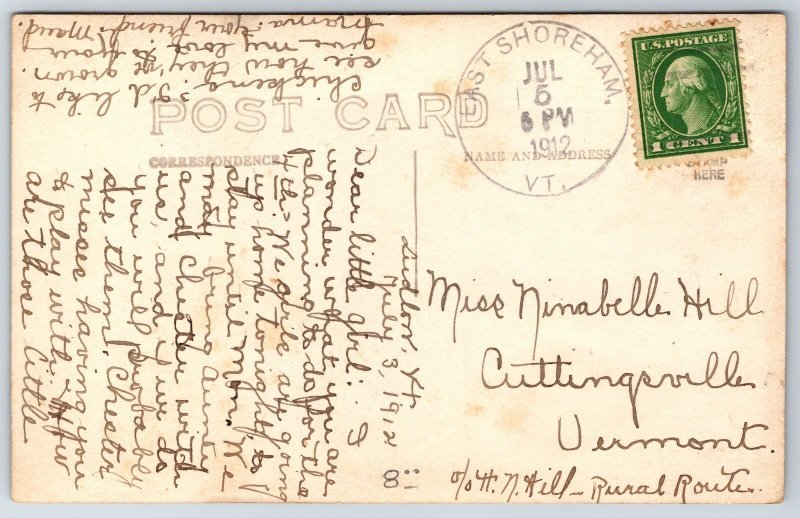 POST CARD
CORRESPONDENCE
NAME AND ADDRESS
STAMP
HERE
U.S. POSTAGE
1 CENT 1
EAST SHOREHAM,
JUL
5
6 PM
1912
VT.
Miss Ninabelle Hill
Cuttingsville
Vermont.
c/o H. N. Hill - Rural Route.
Ludlow Vt
July 3, 1912
Dear little girl: I
wonder what you are
planning to do for the
4th. We girls are going
up home tonight, to
stay until Mon. We
may bring Aunty
and Chester with
us, and if we do
you will probably
see them. Chester
misses having you
to play with. How
are those little
chickens. I'd like to
see how they've grown.
give my love to your
mamma. Your friend Maud.
8